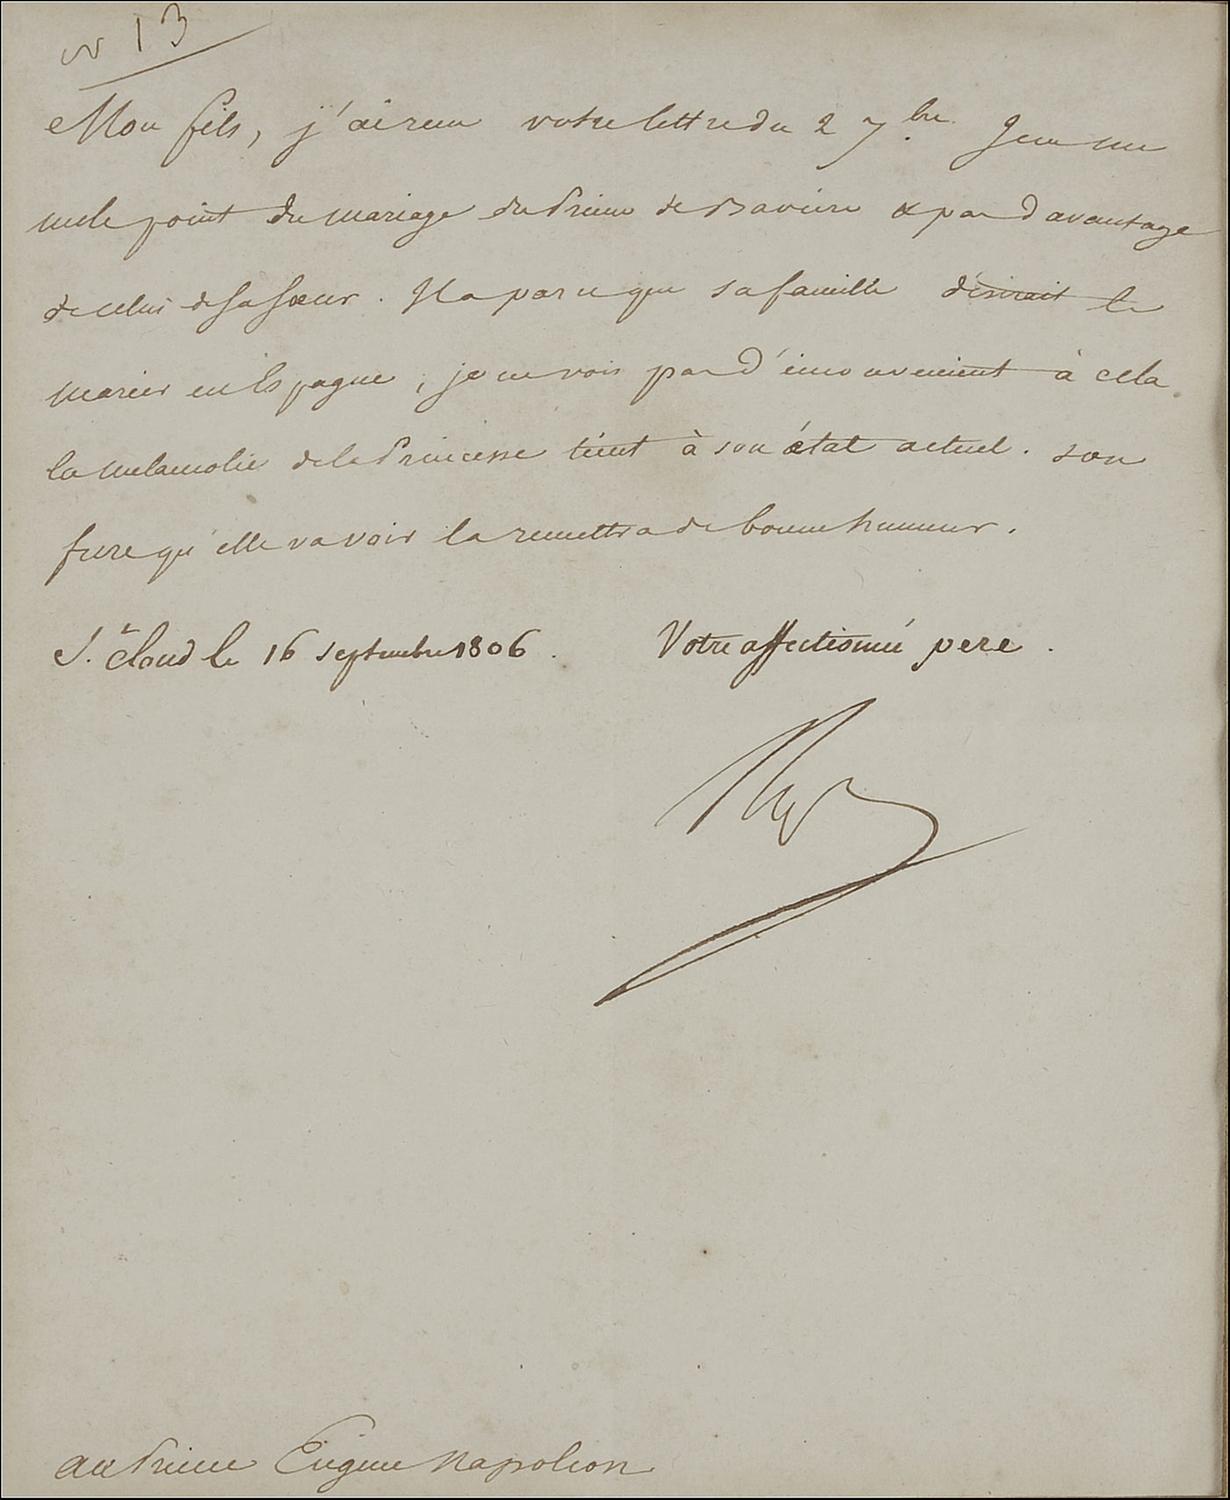 n° 13
Mon fils, j'ai reçu votre lettre du 2 7bre. Je ne me
mele point du mariage du Prince de Baviere & pas d'avantage
de celui de sa sœur. Il a paru que sa famille désirait le
marier en Espagne, je ne vois pas d'inconvenient à cela.
la melancolie de la Princesse tient à son état actuel. son
frere qu'elle va voir la remettra de bonne humeur.
St. Cloud le 16 septembre 1806. Votre affectionné pere.
Nap
au Prince Eugene Napoleon